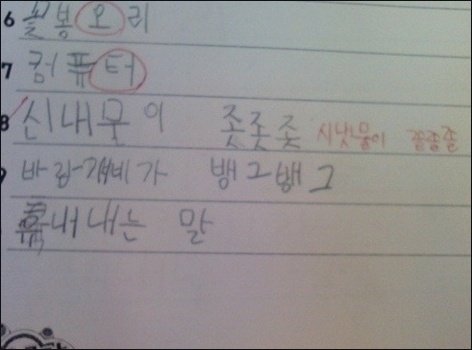 6 꽃봉오리
7 컴퓨터
8 신내물이 좃좃좃 시냇물이 졸졸졸
9 바람개비가 뱅그뱅그
흉내내는 말